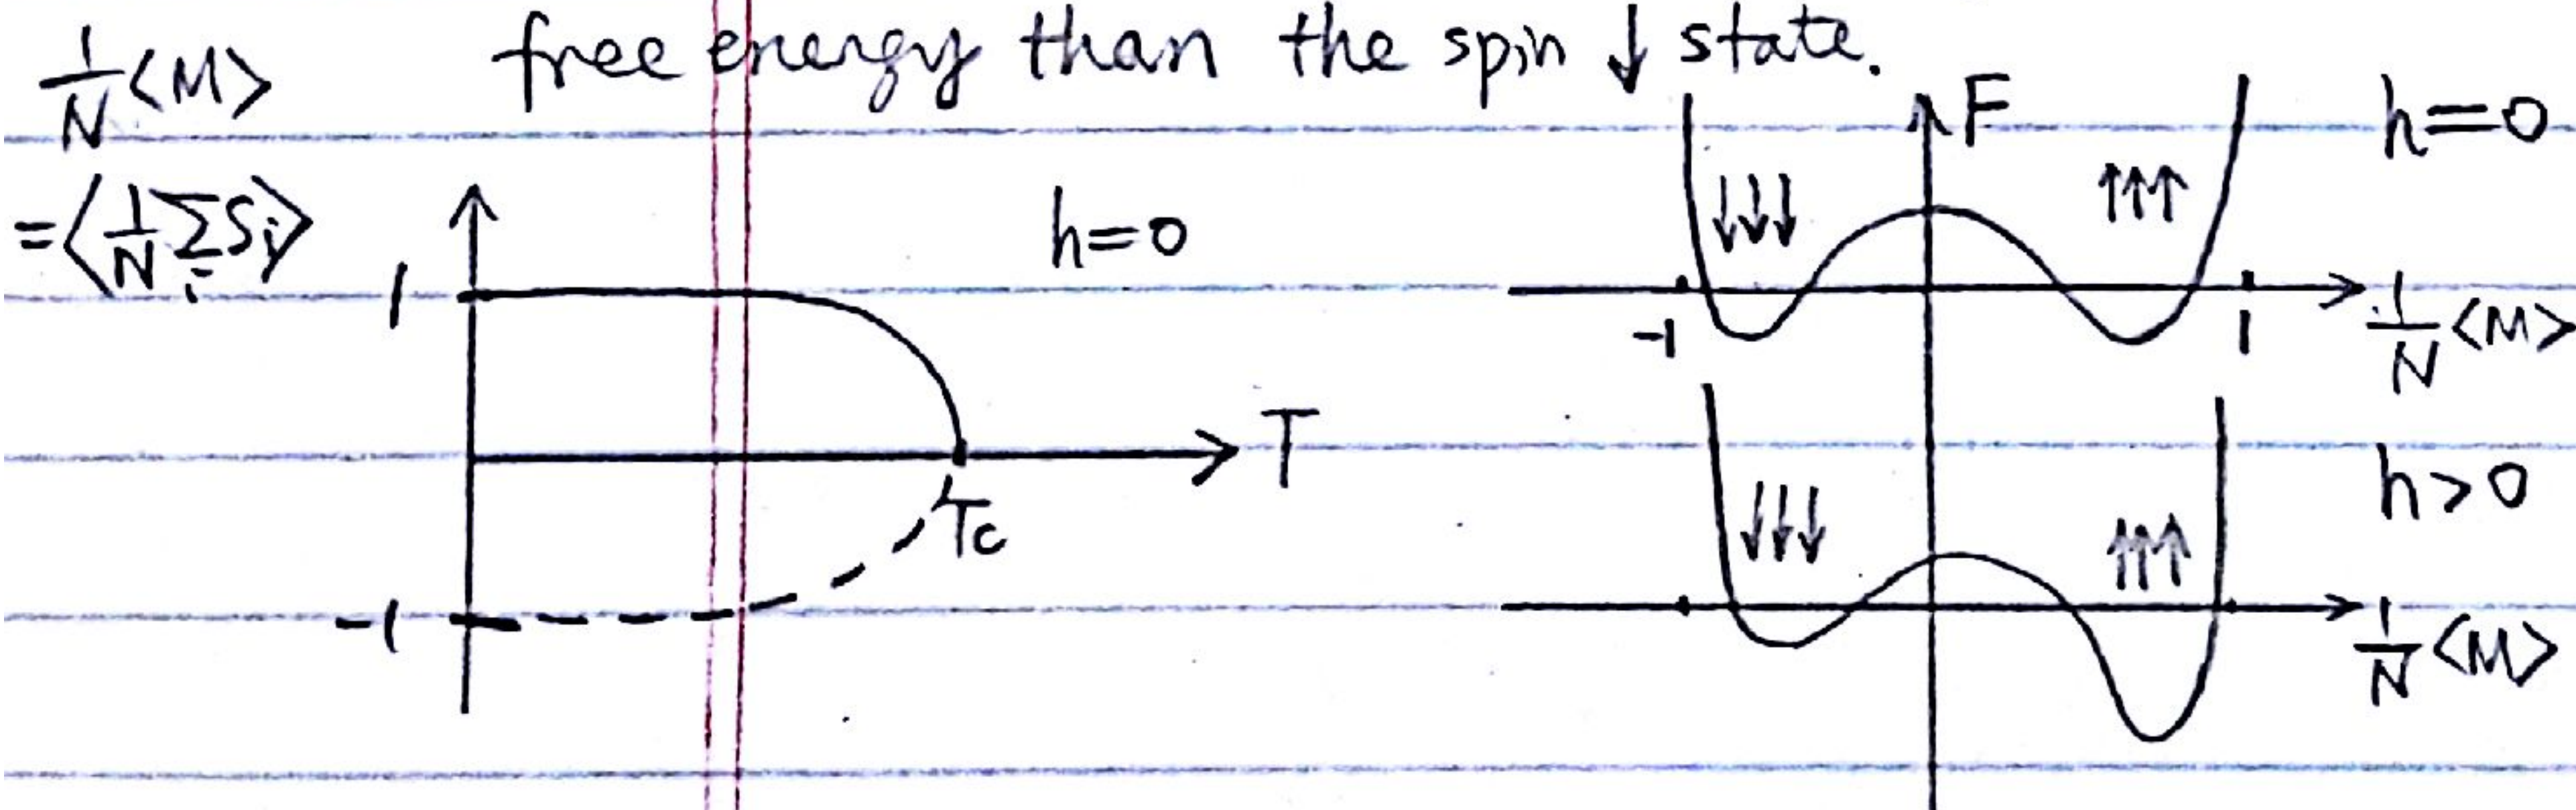 free energy than the spin ↓ state.
1/N <M>
= <1/N Σ_i S_i>
1
-1
h=0
T
Tc
F
h=0
↓↓↓
↑↑↑
-1
1
1/N <M>
h>0
↓↓↓
↑↑↑
1/N <M>